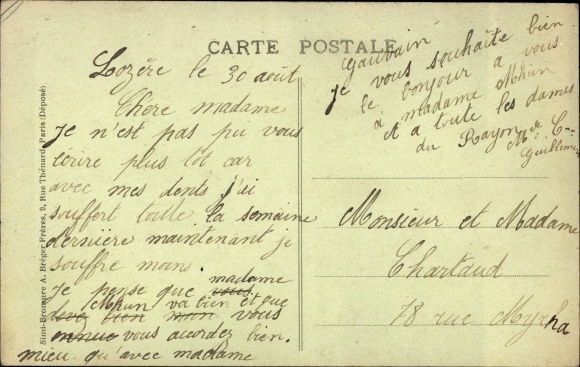 CARTE POSTALE
Lozére le 30 août
Chere madame
Je n'est pas pu vous
écrire plus tot car
avec mes dents j'ai
souffert toute la semaine
dernière maintenant je
souffre moins.
Je pense que madame
Mhun va bien et que
vous
vous accordez bien.
mieu qu'avec madame
Gauvain
je vous souhaite bien
le bonjour a vous
à madame Mhun
et a toute les dames
du Rayon
Monsieur et Madame
Chartaud
78 rue Myrha
Simi-Bromure A. Bréger Frères, 9, Rue Thénard, Paris (Déposé)